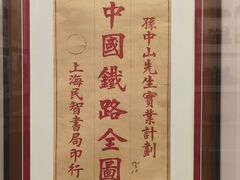 孫中山先生實業計劃
中國鐵路全圖
上海民智書局印行